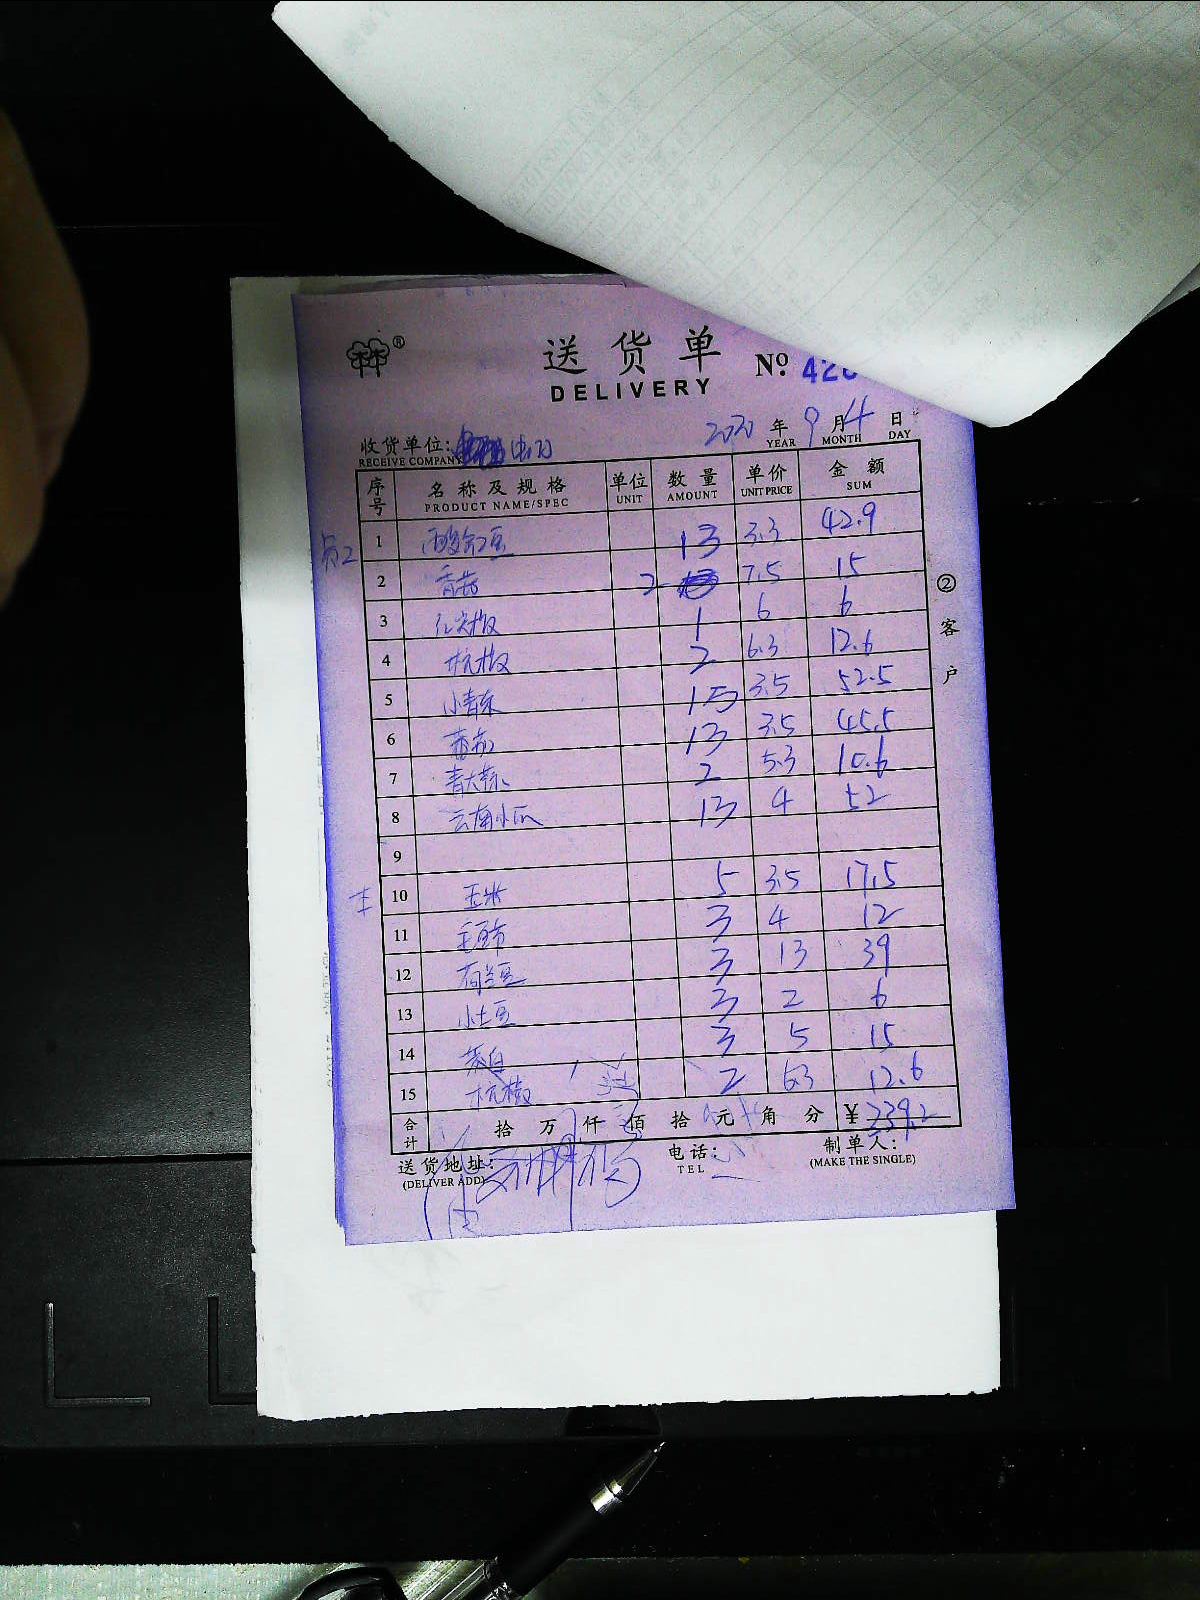 林®
送货单
DELIVERY
No. 420
2020 年 9 月 4 日
YEAR MONTH DAY
收货单位:
RECEIVE COMPANY
序号 名称及规格 单位 数量 单价 金额
PRODUCT NAME/SPEC UNIT AMOUNT UNIT PRICE SUM
员工 1 酸豇豆 13 3.3 42.9
2 香茹 2 7.5 15
3 红尖椒 1 6 6
4 杭椒 2 6.3 12.6
5 小青菜 15 3.5 52.5
6 13 3.5 45.5
7 青大 2 5.3 10.6
8 云南小瓜 13 4 52
9
10 玉米 5 3.5 17.5
11 3 4 12
12 荷兰豆 3 13 39
13 小土豆 3 2 6
14 茭白 3 5 15
15 杭椒 2 6.3 12.6
合计 拾 万 仟 佰 拾 元 角 分 ¥ 339.2
送货地址: 电话: 制单人:
(DELIVER ADD) TEL (MAKE THE SINGLE)
②客户